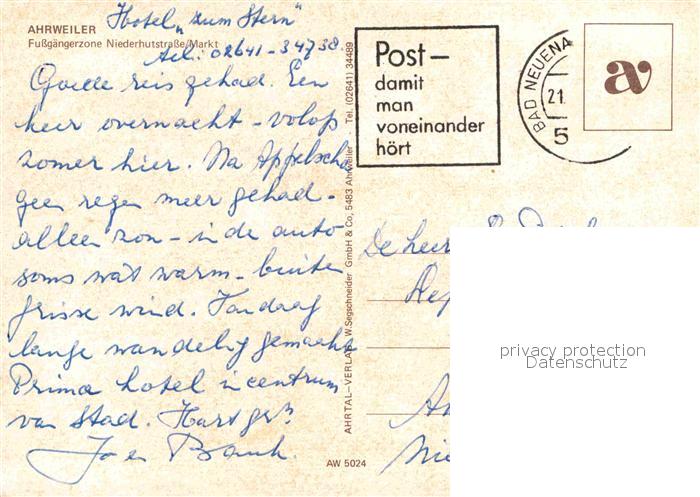 Hotel „zum Stern"
AHRWEILER
Fußgängerzone Niederhutstraße/Markt
Tel: 02641-34738
Goede reis gehad. Een
keer overnacht - volop
zomer hier. Na Appelscha
geen regen meer gehad -
alleen zon - in de auto
soms wat warm - buiten
frisse wind. Vandaag
lange wandeling gemaakt
Prima hotel in centrum
van Stad. Hart gr.
Jo en
AHRTAL-VERLAG W. Segschneider GmbH & Co, 5483 Ahrweiler Tel. (02641) 34489
AW 5024
Post –
damit
man
voneinander
hört
BAD NEUENA
21.
5
av
De heer
privacy protection
Datenschutz